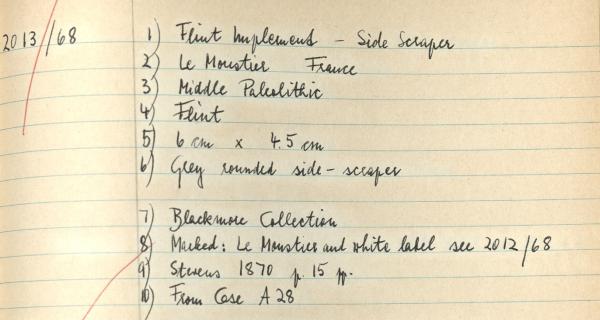 2013/68 1) Flint Implement - Side Scraper
2) Le Moustier France
3) Middle Paleolithic
4) Flint
5) 6 cm x 4.5 cm
6) Grey rounded side-scraper
7) Blackmore Collection
8) Marked: Le Moustier and white label see 2012/68
9) Stevens 1870 p. 15 pp.
10) From Case A 28